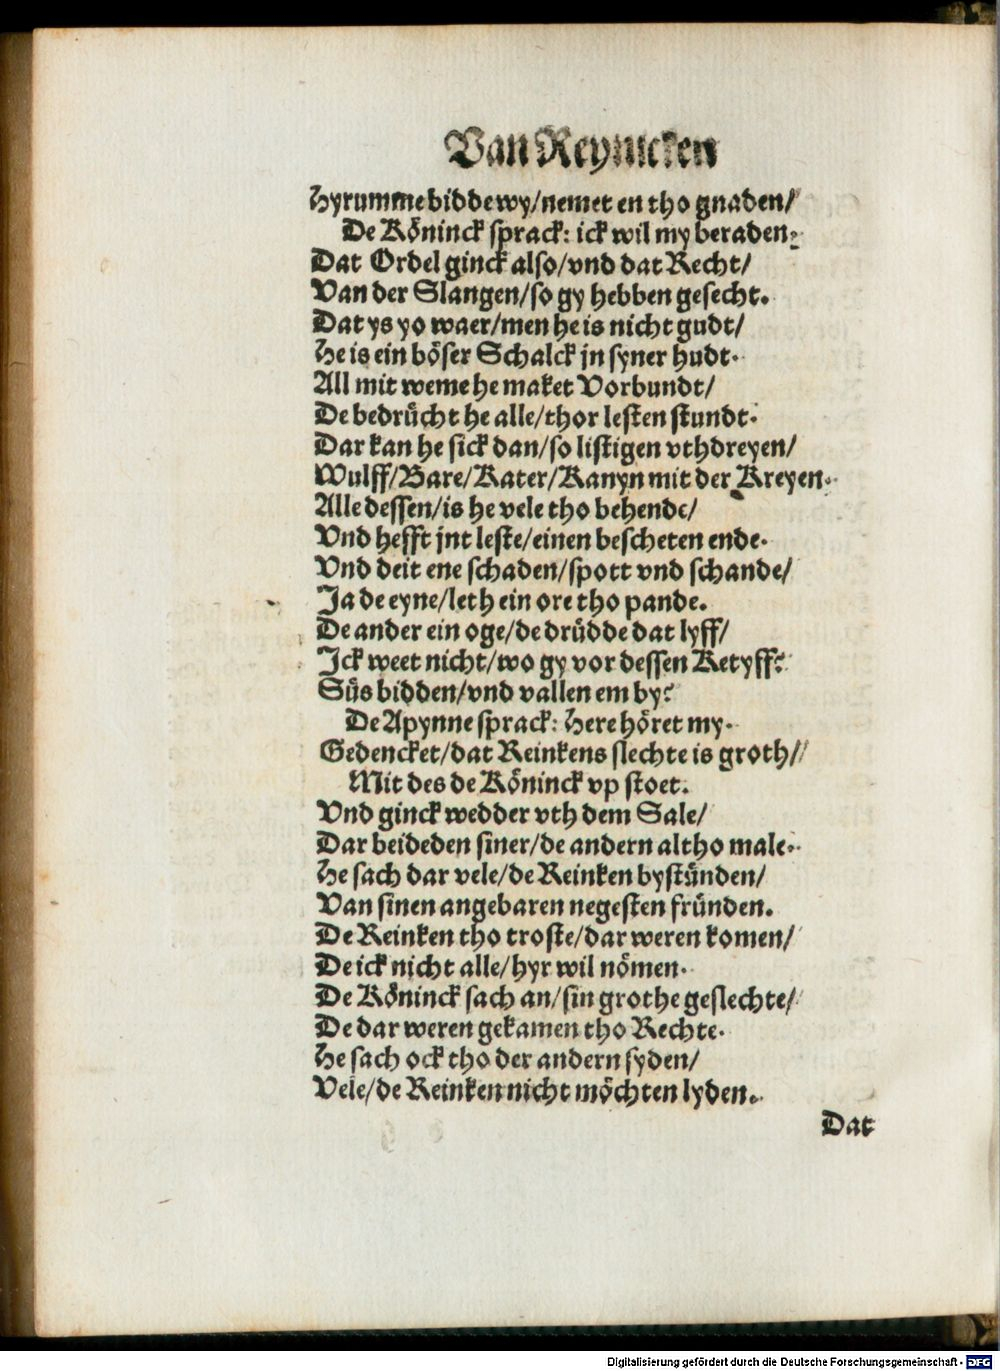 Van Reynicken
Hyrumme bidde wy/nemet en tho gnaden/
De Köninck sprack: ick wil my beraden.
Dat Ordel ginck also/vnd dat Recht/
Van der Slangen/so gy hebben gesecht.
Dat ys yo waer/men he is nicht gudt/
He is ein böser Schalck jn syner hudt.
All mit weme he maket Vorbundt/
De bedrücht he alle/thor lesten stundt.
Dar kan he sick dan/so listigen vthdreyen/
Wulff/Bare/Kater/Kanyn mit der Kreyen.
Alle dessen/is he vele tho behende/
Vnd hefft jnt leste/einen bescheten ende.
Vnd deit ene schaden/spott vnd schande/
Ja de eyne/leth ein ore tho pande.
De ander ein oge/de drüdde dat lyff/
Ick weet nicht/wo gy vor dessen Ketyff?
Süs bidden/vnd vallen em by?
De Apynne sprack: Here höret my.
Gedencket/dat Reinkens slechte is groth/
Mit des de Köninck vp stoet.
Vnd ginck wedder vth dem Sale/
Dar beideden siner/de andern altho male.
He sach dar vele/de Reinken bystünden/
Van sinen angebaren negesten fründen.
De Reinken tho troste/dar weren komen/
De ick nicht alle/hyr wil nömen.
De Köninck sach an/sin grothe geslechte/
De dar weren gekamen tho Rechte.
He sach ock tho der andern syden/
Vele/de Reinken nicht möchten lyden.
Dat
Digitalisierung gefördert durch die Deutsche Forschungsgemeinschaft - DFG